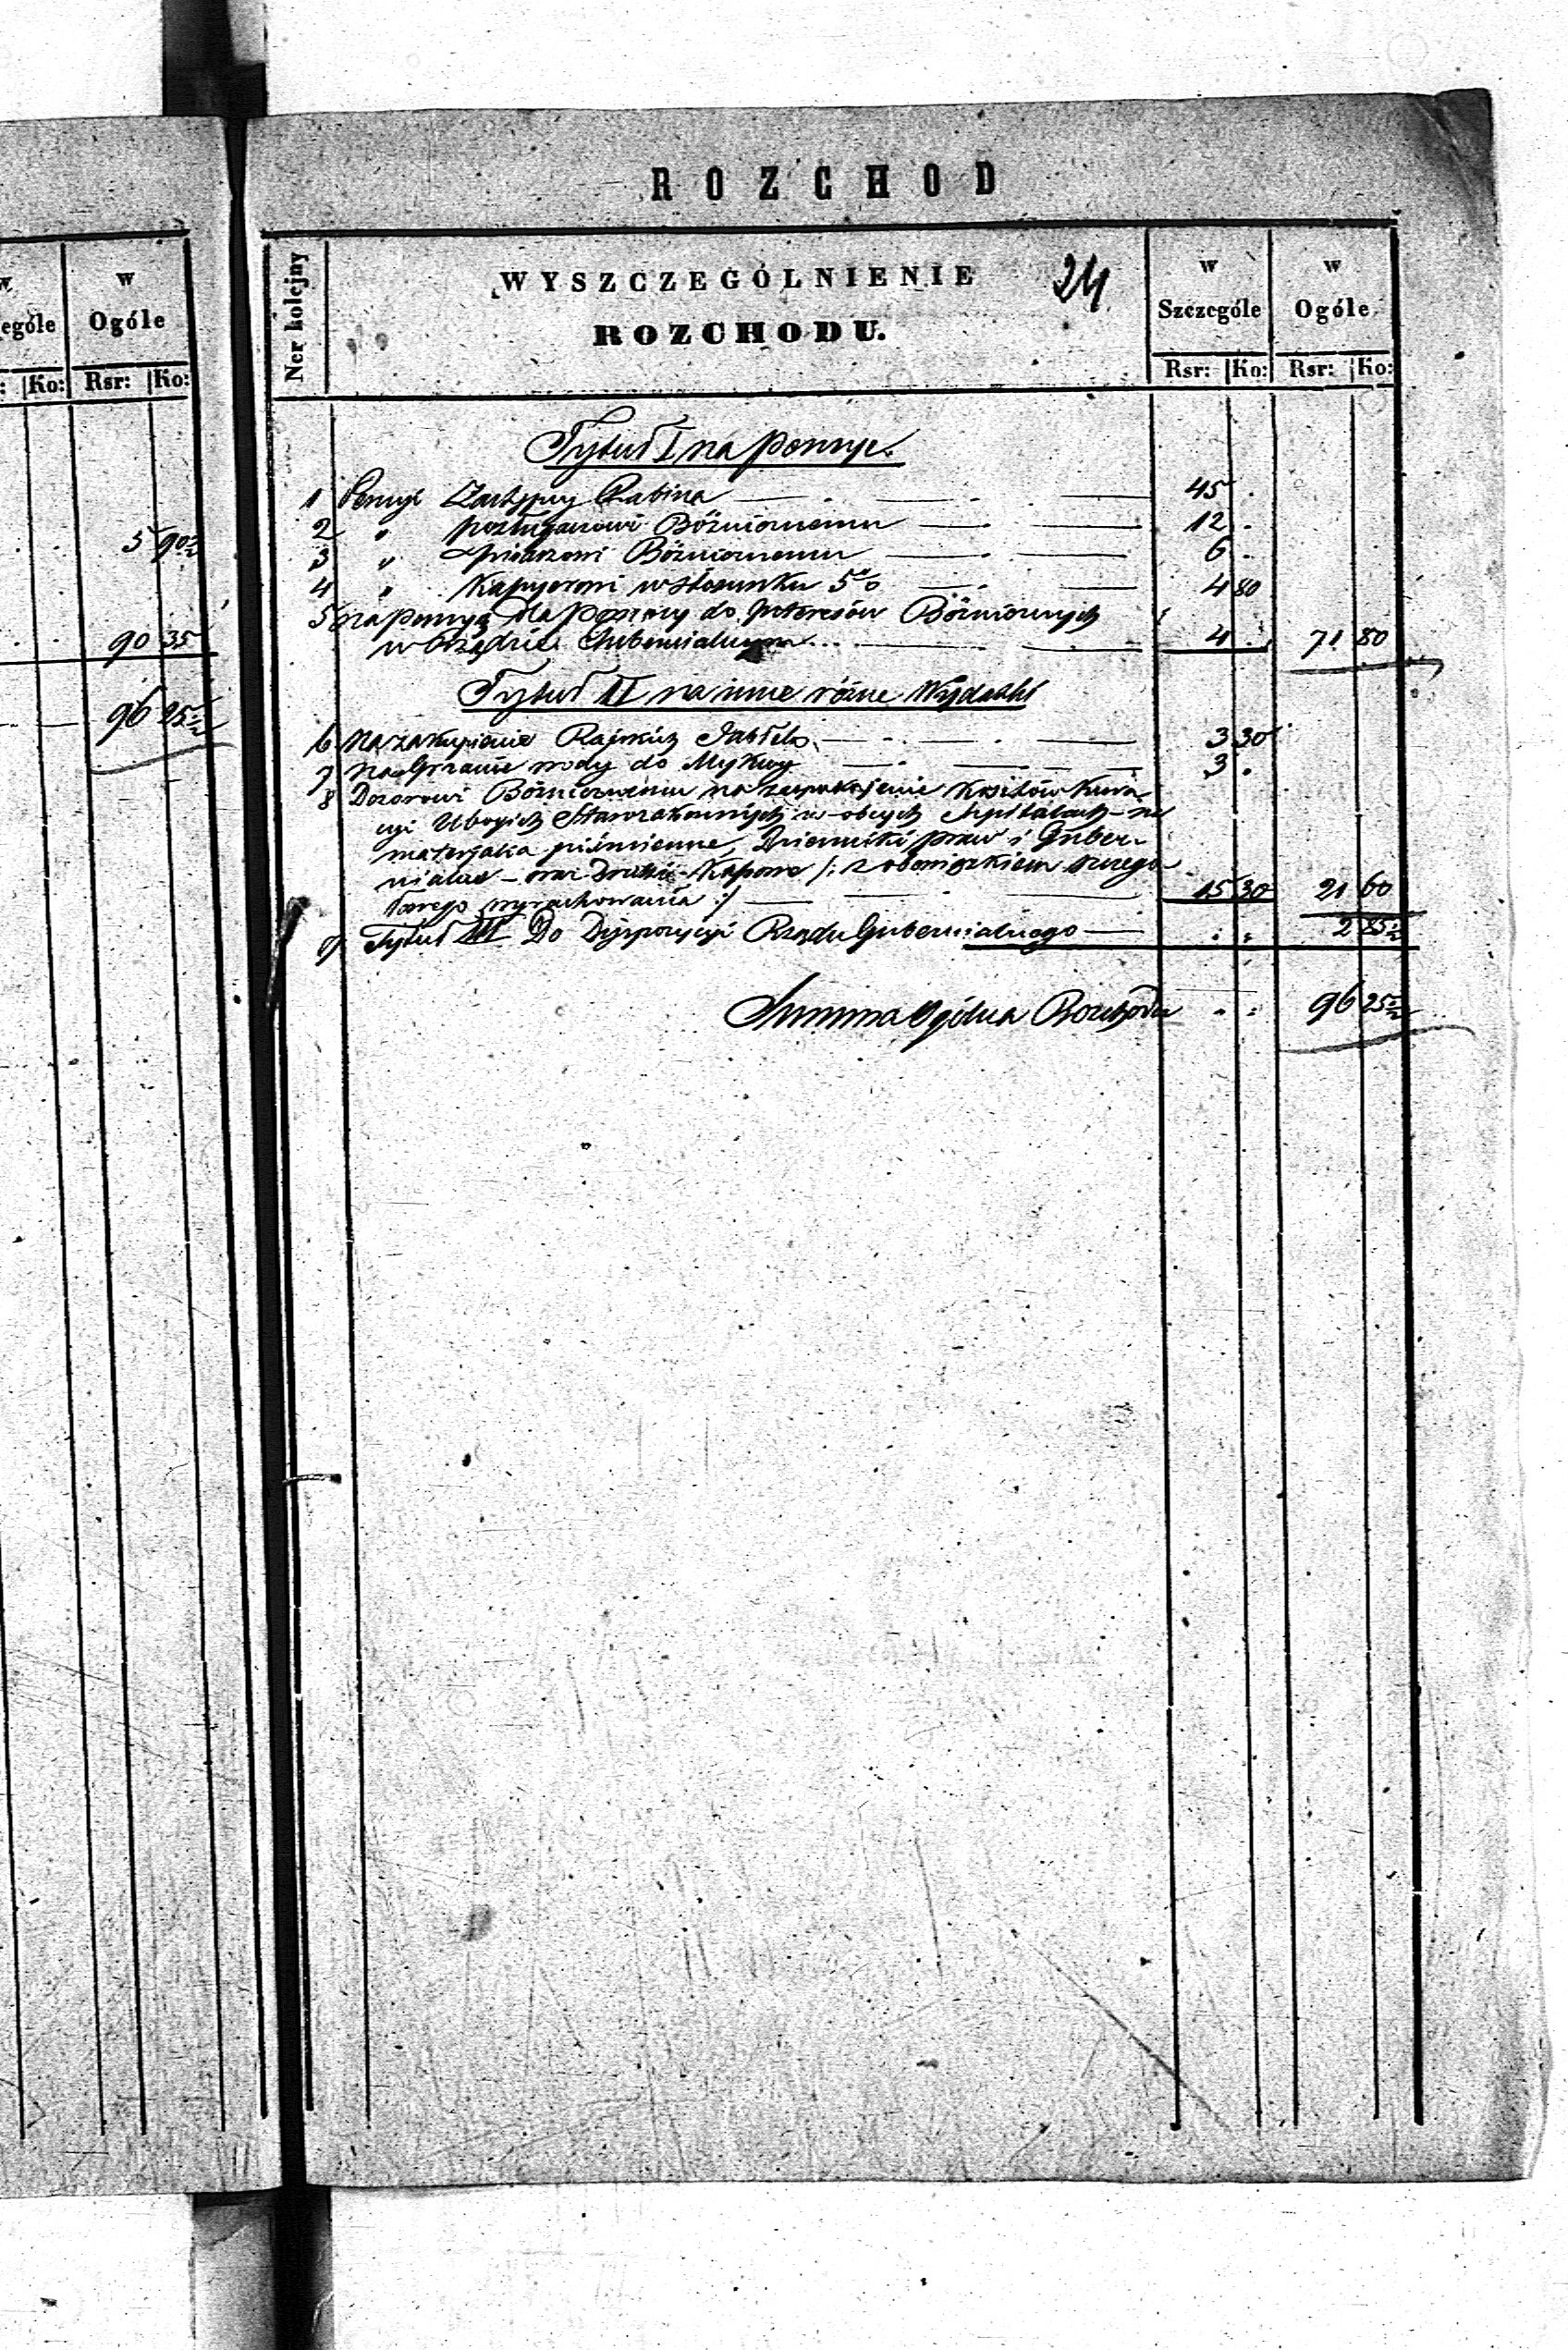 w
ególe
w
Ogóle
Ko:
Rsr:
Ko:
5 90½
90 35
96 25½
ROZCHOD
Ner kolejny
WYSZCZEGÓLNIENIE
ROZCHODU.
24
w
Szczególe
w
Ogóle
Rsr: Ko: Rsr: Ko:
Tytuł I na Pensye.
1 Pensyi Zastępcy Rabina 45 .
2 " Posługaczowi Bóżnicznemu 12 .
3 " Pisarzowi Bóżnicznemu 6 .
4 " Kassyerowi w stosunku 5% 4 80
5 na pensyą dla do Interesów Bóżnicznych
w Rządzie Gubernialnym 4 . 71 80
Tytuł II na inne różne Wydatki
6 Na zakupienie Rajskich Jabłek 3 30
7 Na Grzanie wody do Mykwy 3 .
8 Dozorowi Bóżnicznemu na zaspokojenie kosztów kura
cyi Ubogich Starozakonnych w obcych Szpitalach - na
materyały piśmienne, Dzienniki praw i Guber-
nialne - oraz Druki Kassowe /: z obowiązkiem szczegó
łowego wyrachowania :/ 15 30 21 60
9 Tytuł III Do Dyspozycyi Rządu Gubernialnego . . 2 85½
Summa Ogólna Rozchodu . . 96 25½